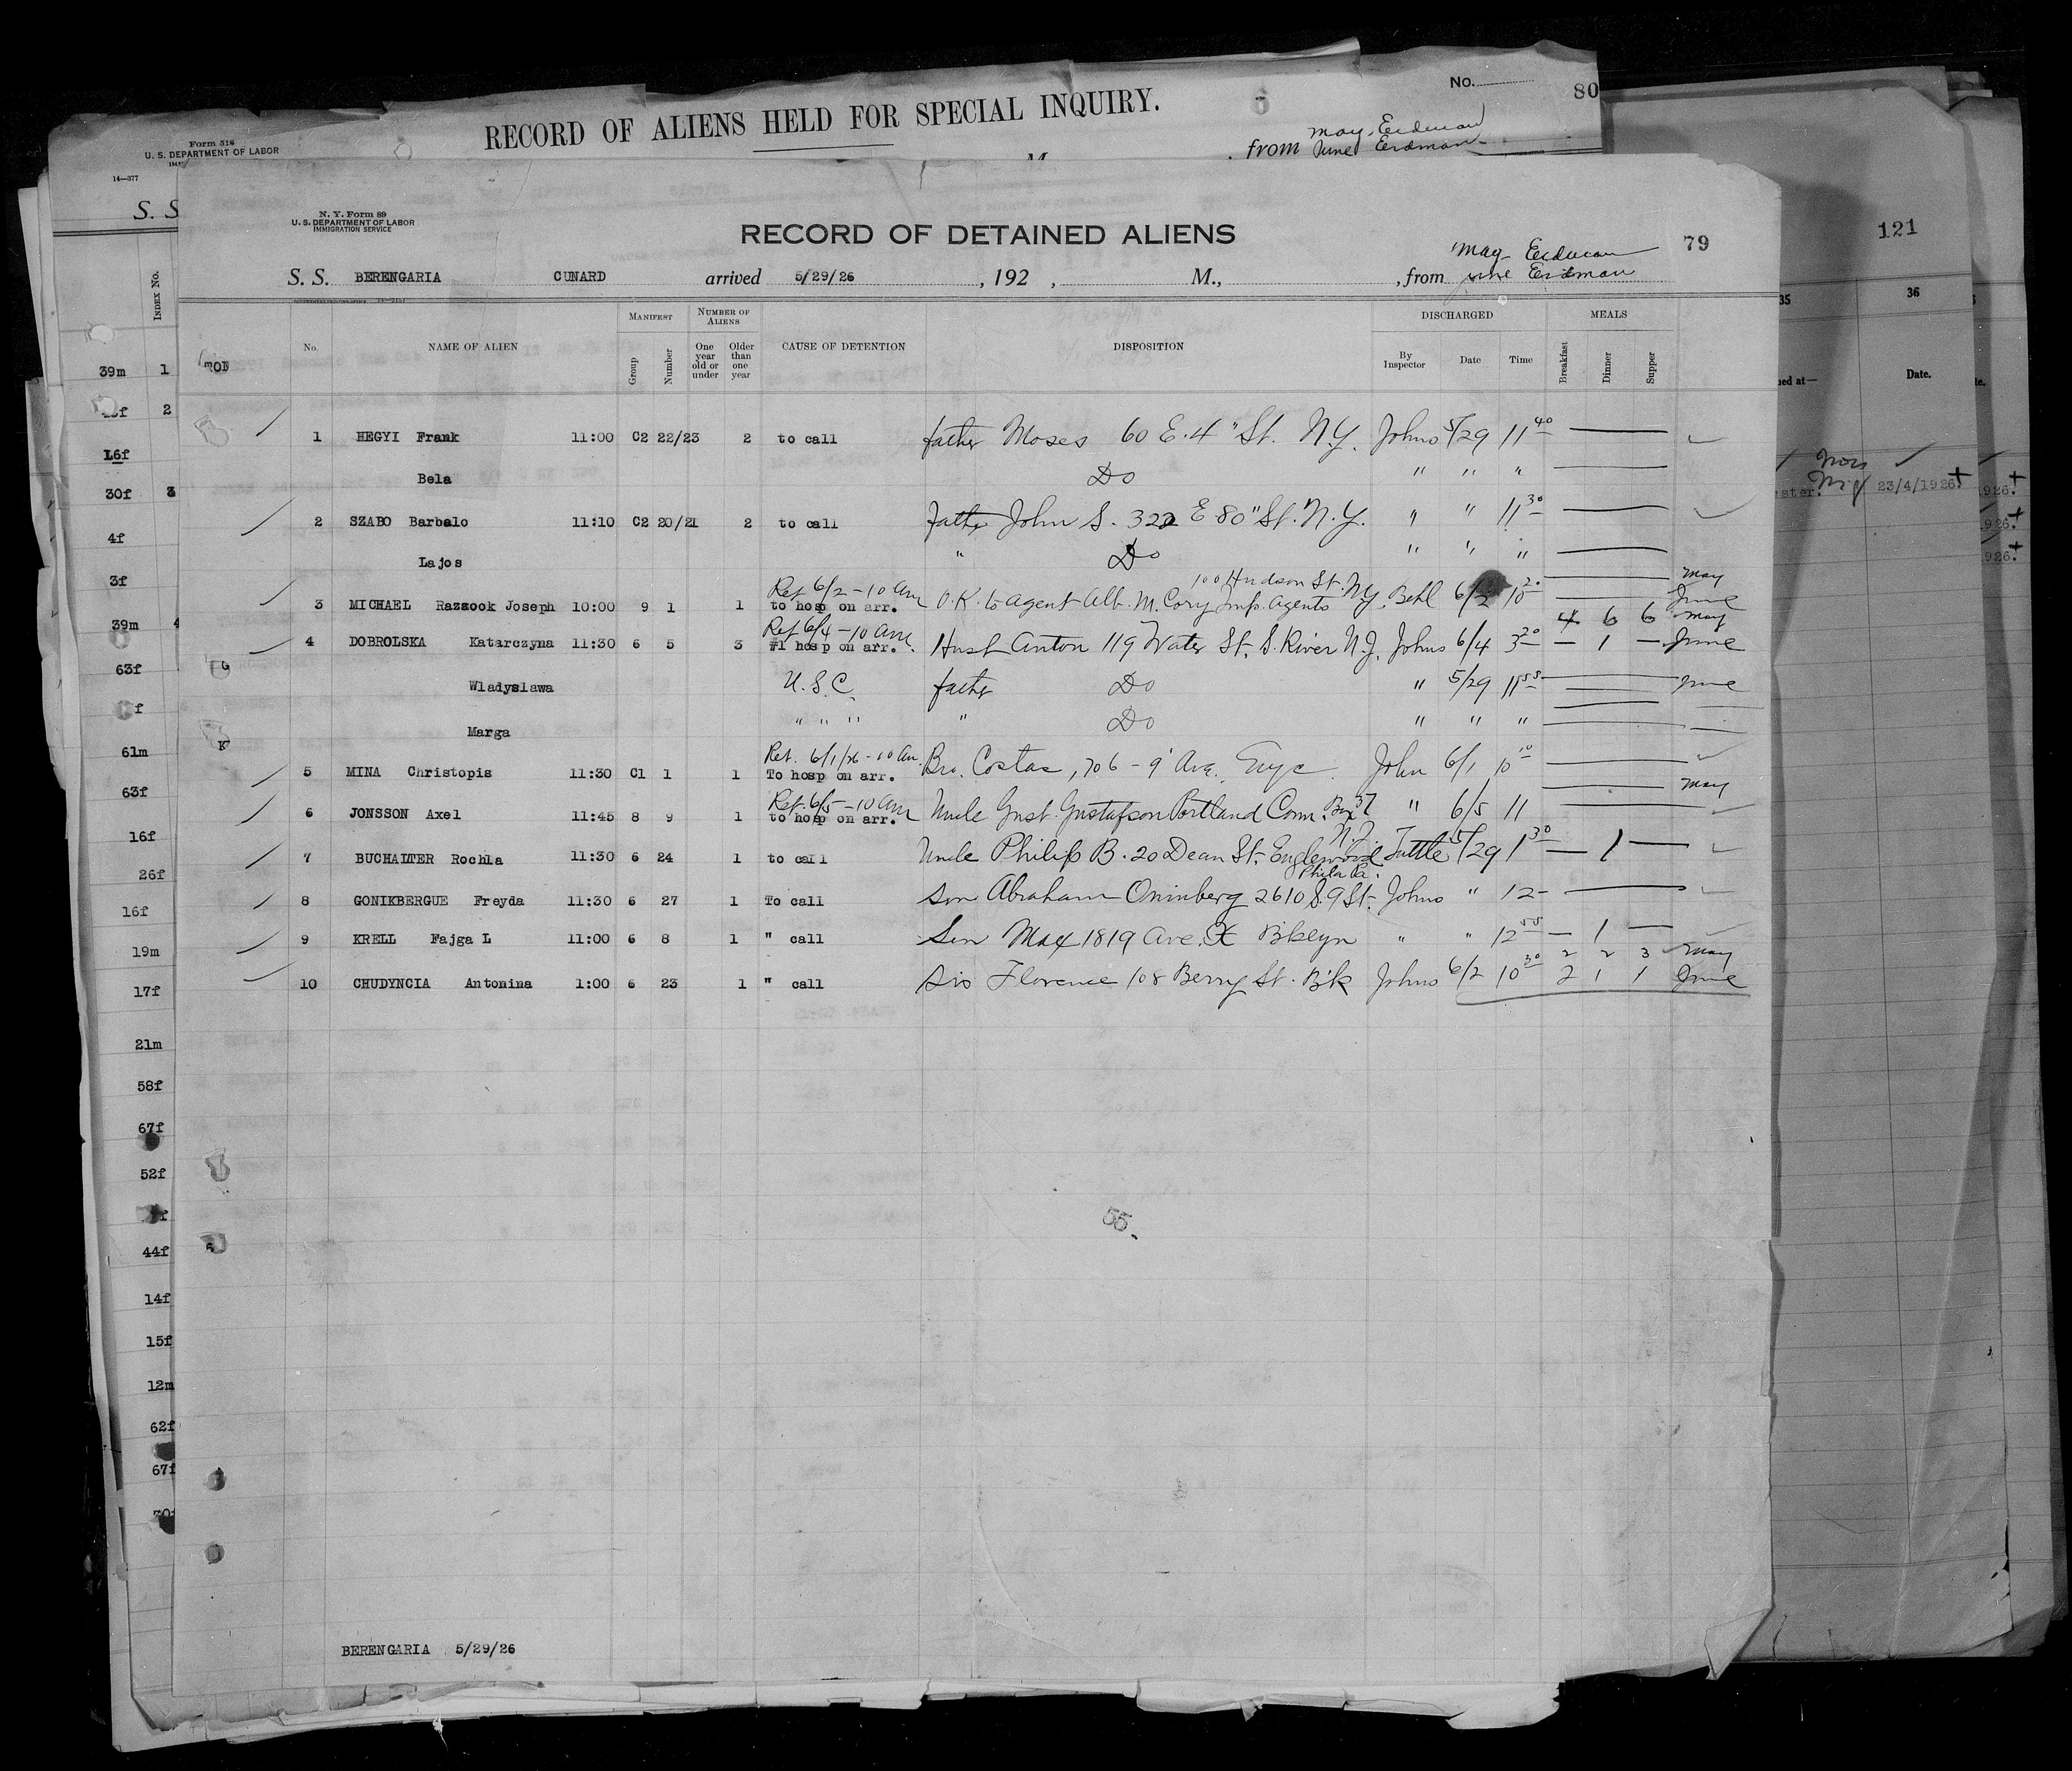 No. 80
RECORD OF ALIENS HELD FOR SPECIAL INQUIRY.
Form 518
U. S. DEPARTMENT OF LABOR
14—377
from May Erdman
June Erdman
S. S
INDEX No.
N. Y. Form 89
U. S. DEPARTMENT OF LABOR
IMMIGRATION SERVICE
RECORD OF DETAINED ALIENS
79
May Erdman
S. S. BERENGARIA CUNARD arrived 5/29/26 , 192 , M., , from June Erdman
No. NAME OF ALIEN MANIFEST Group Number NUMBER OF ALIENS One year old or under Older than one year CAUSE OF DETENTION DISPOSITION DISCHARGED By Inspector Date Time MEALS Breakfast Dinner Supper
1 HEGYI Frank 11:00 C2 22/23 2 to call father Moses 60 E. 4" St. N.Y. Johns 5/29 11 40
Bela Do " " "
2 SZABO Barbalo 11:10 C2 20/21 2 to call father John S. 322 E 80" St. N.Y. " " 11 30
Lajos " Do " " "
Ret 6/2 - 10 Am 100 Hudson St. May
3 MICHAEL Razzook Joseph 10:00 9 1 1 to hosp on arr. O.K. to agent Alb. M. Cory Imp. Agents N.Y. 6/2 10 20 June
Ret 6/4 - 10 Am 4 6 6 May
4 DOBROLSKA Katarczyna 11:30 6 5 3 #1 hosp on arr. Husb Anton 119 Water St. S. River N.J. Johns 6/4 3 20 — 1 — June
Wladyslawa U.S.C. father Do " 5/29 11 55 June
Marga " " " " Do " " "
Ret. 6/1/26 - 10 Am.
5 MINA Christopis 11:30 C1 1 1 To hosp on arr. Bro. Costas, 706 - 9' Ave. John 6/1 10 10
Ret. 6/5 - 10 Am May
6 JONSSON Axel 11:45 8 9 1 to hosp on arr. Uncle Gust. Gustafson Portland Conn. Box 37 " 6/5 11
7 BUCHALTER Rochla 11:30 6 24 1 to call Uncle Philip B. 20 Dean St. Englewood N.J. Tuttle 5/29 1 30 — 1 —
Phila Pa.
8 GONIKBERGUE Freyda 11:30 6 27 1 To call son Abraham Oninberg 2610 S. 9 St. Johns " 12 -
9 KRELL Fajga L 11:00 6 8 1 " call Son Max 1819 Ave. X Bklyn " " 12 55 — 1 —
2 2 3 May
10 CHUDYNCIA Antonina 1:00 6 23 1 " call Sis Florence 108 Berry St. Bk Johns 6/2 10 30 2 1 1 June
55.
BERENGARIA 5/29/26
39m 1
2
16f
30f 3
4f
3f
39m 4
63f
61m
63f
16f
26f
16f
19m
17f
21m
58f
67f
52f
44f
14f
15f
12m
62f
67f
121
35 36
ued at— Date.
23/4/1926. +